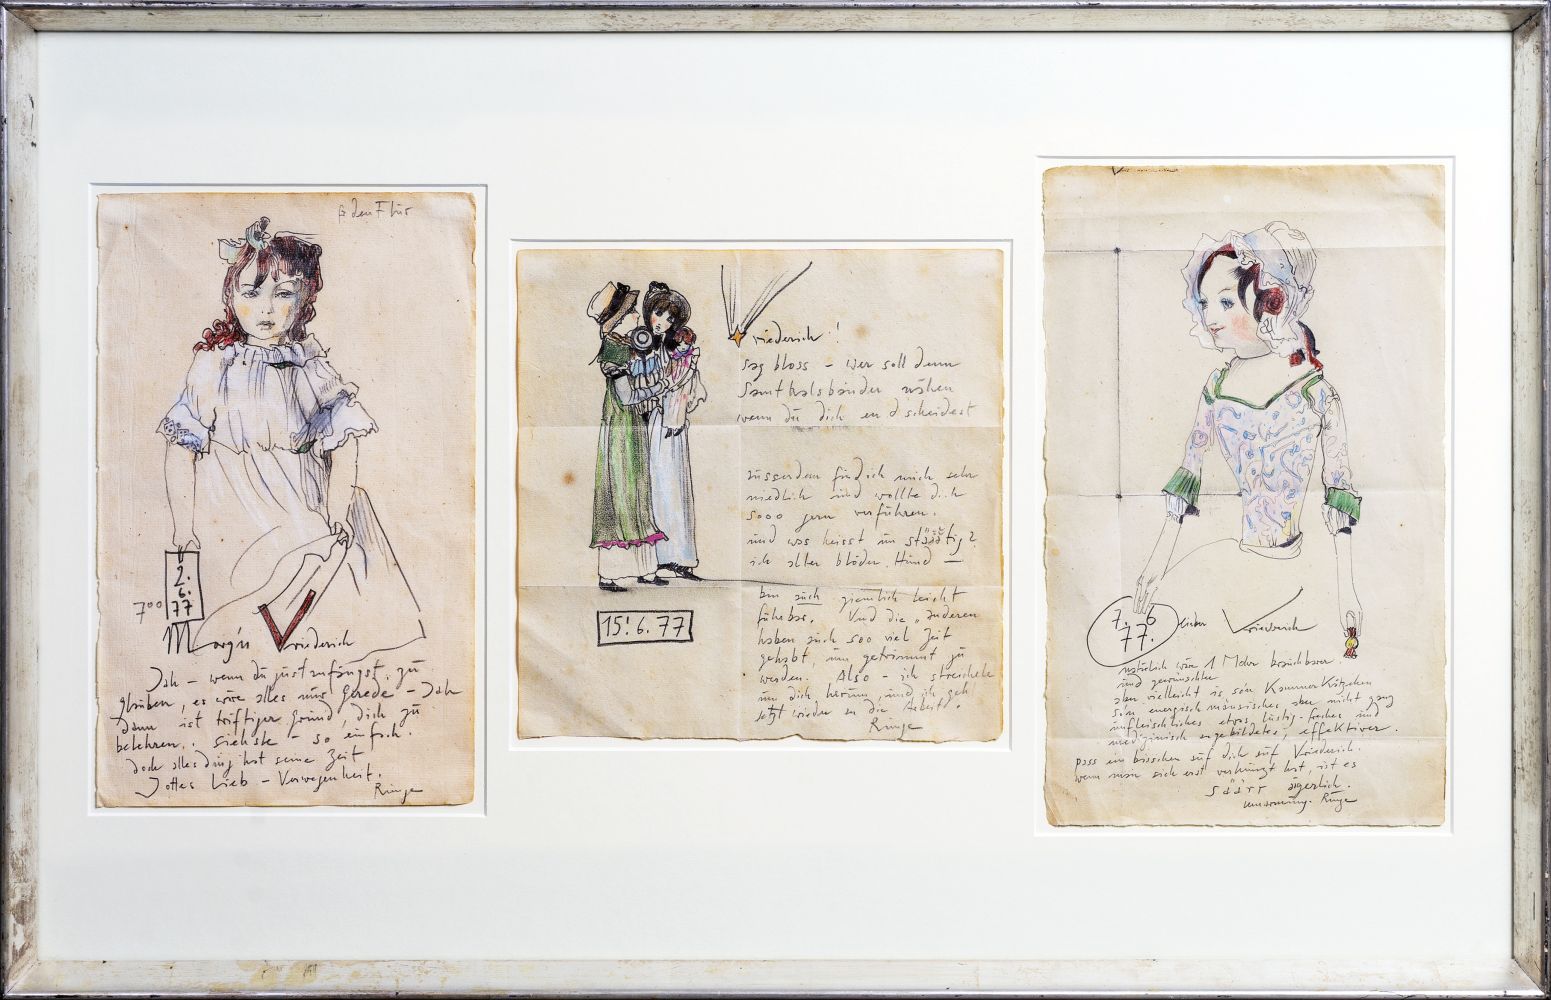 den Flur
2.
6.
77
7⁰⁰
Morg'n Vriederich
Jah - wenn du just anfängst, zu
glauben, es wäre alles nur Gerede - Jah
dann ist triftiger Grund, dich zu
belehren. siehste - so einfach.
doch alles Ding hat seine Zeit
Jottes Lieb - Verwegenheit.
Ringe
Vriederich!
sag bloss - wer soll denn
Samthalsbänder nähen
wenn du dich end scheidest
äusserdem find ich mich sehr
niedlich und wollte dich
sooo gern verführen.
und was heisst un stäätig?
ich alter blöder Hund -
bin auch ziemlich leicht
führbar. Und die "anderen
haben auch soo viel Zeit
gehabt, um getrimmt zu
werden. Also - ich streichele
um dich herum, und ich geh
jetzt wieder an die Arbeit.
Ringe
15! 6. 77
7. 6
77.
lieber Vriederich
natürlich wäre 1 Mohr brauchbarer
und gewünschter
aber vielleicht is so'n KammerKätzchen
so'n energisch mausisches aber nicht ganz
unfleischliches etwas lustig-freches und
medizinisch angebildetes, effektiver.
pass ein bisschen auf dich auf Vriederich.
wenn man sich erst verhunzt hat, ist es
säärr ärgerlich.
umarmung. Ringe